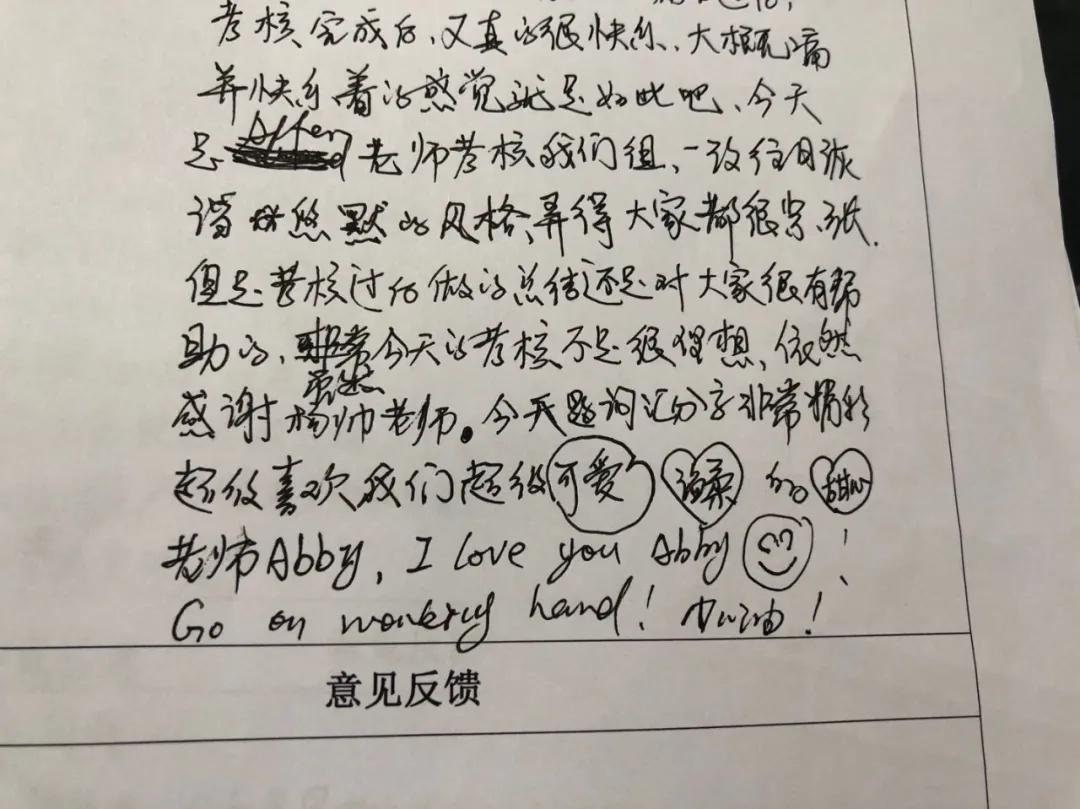 考核完成后,又真的很快乐、大概痛
并快乐着的感觉就是如此吧、今天
是Allen老师考核我们组、一改往日诙
谐悠默的风格、弄得大家都很紧张.
但是考核过后做的总结还是对大家很有帮
助的、虽然今天的考核不是很理想、依然
感谢杨帅老师。今天题词汇分享非常精彩
超级喜欢我们超级可爱 温柔 的 甜心
老师Abby, I love you Abby !
Go on working hard! 加油!
意见反馈